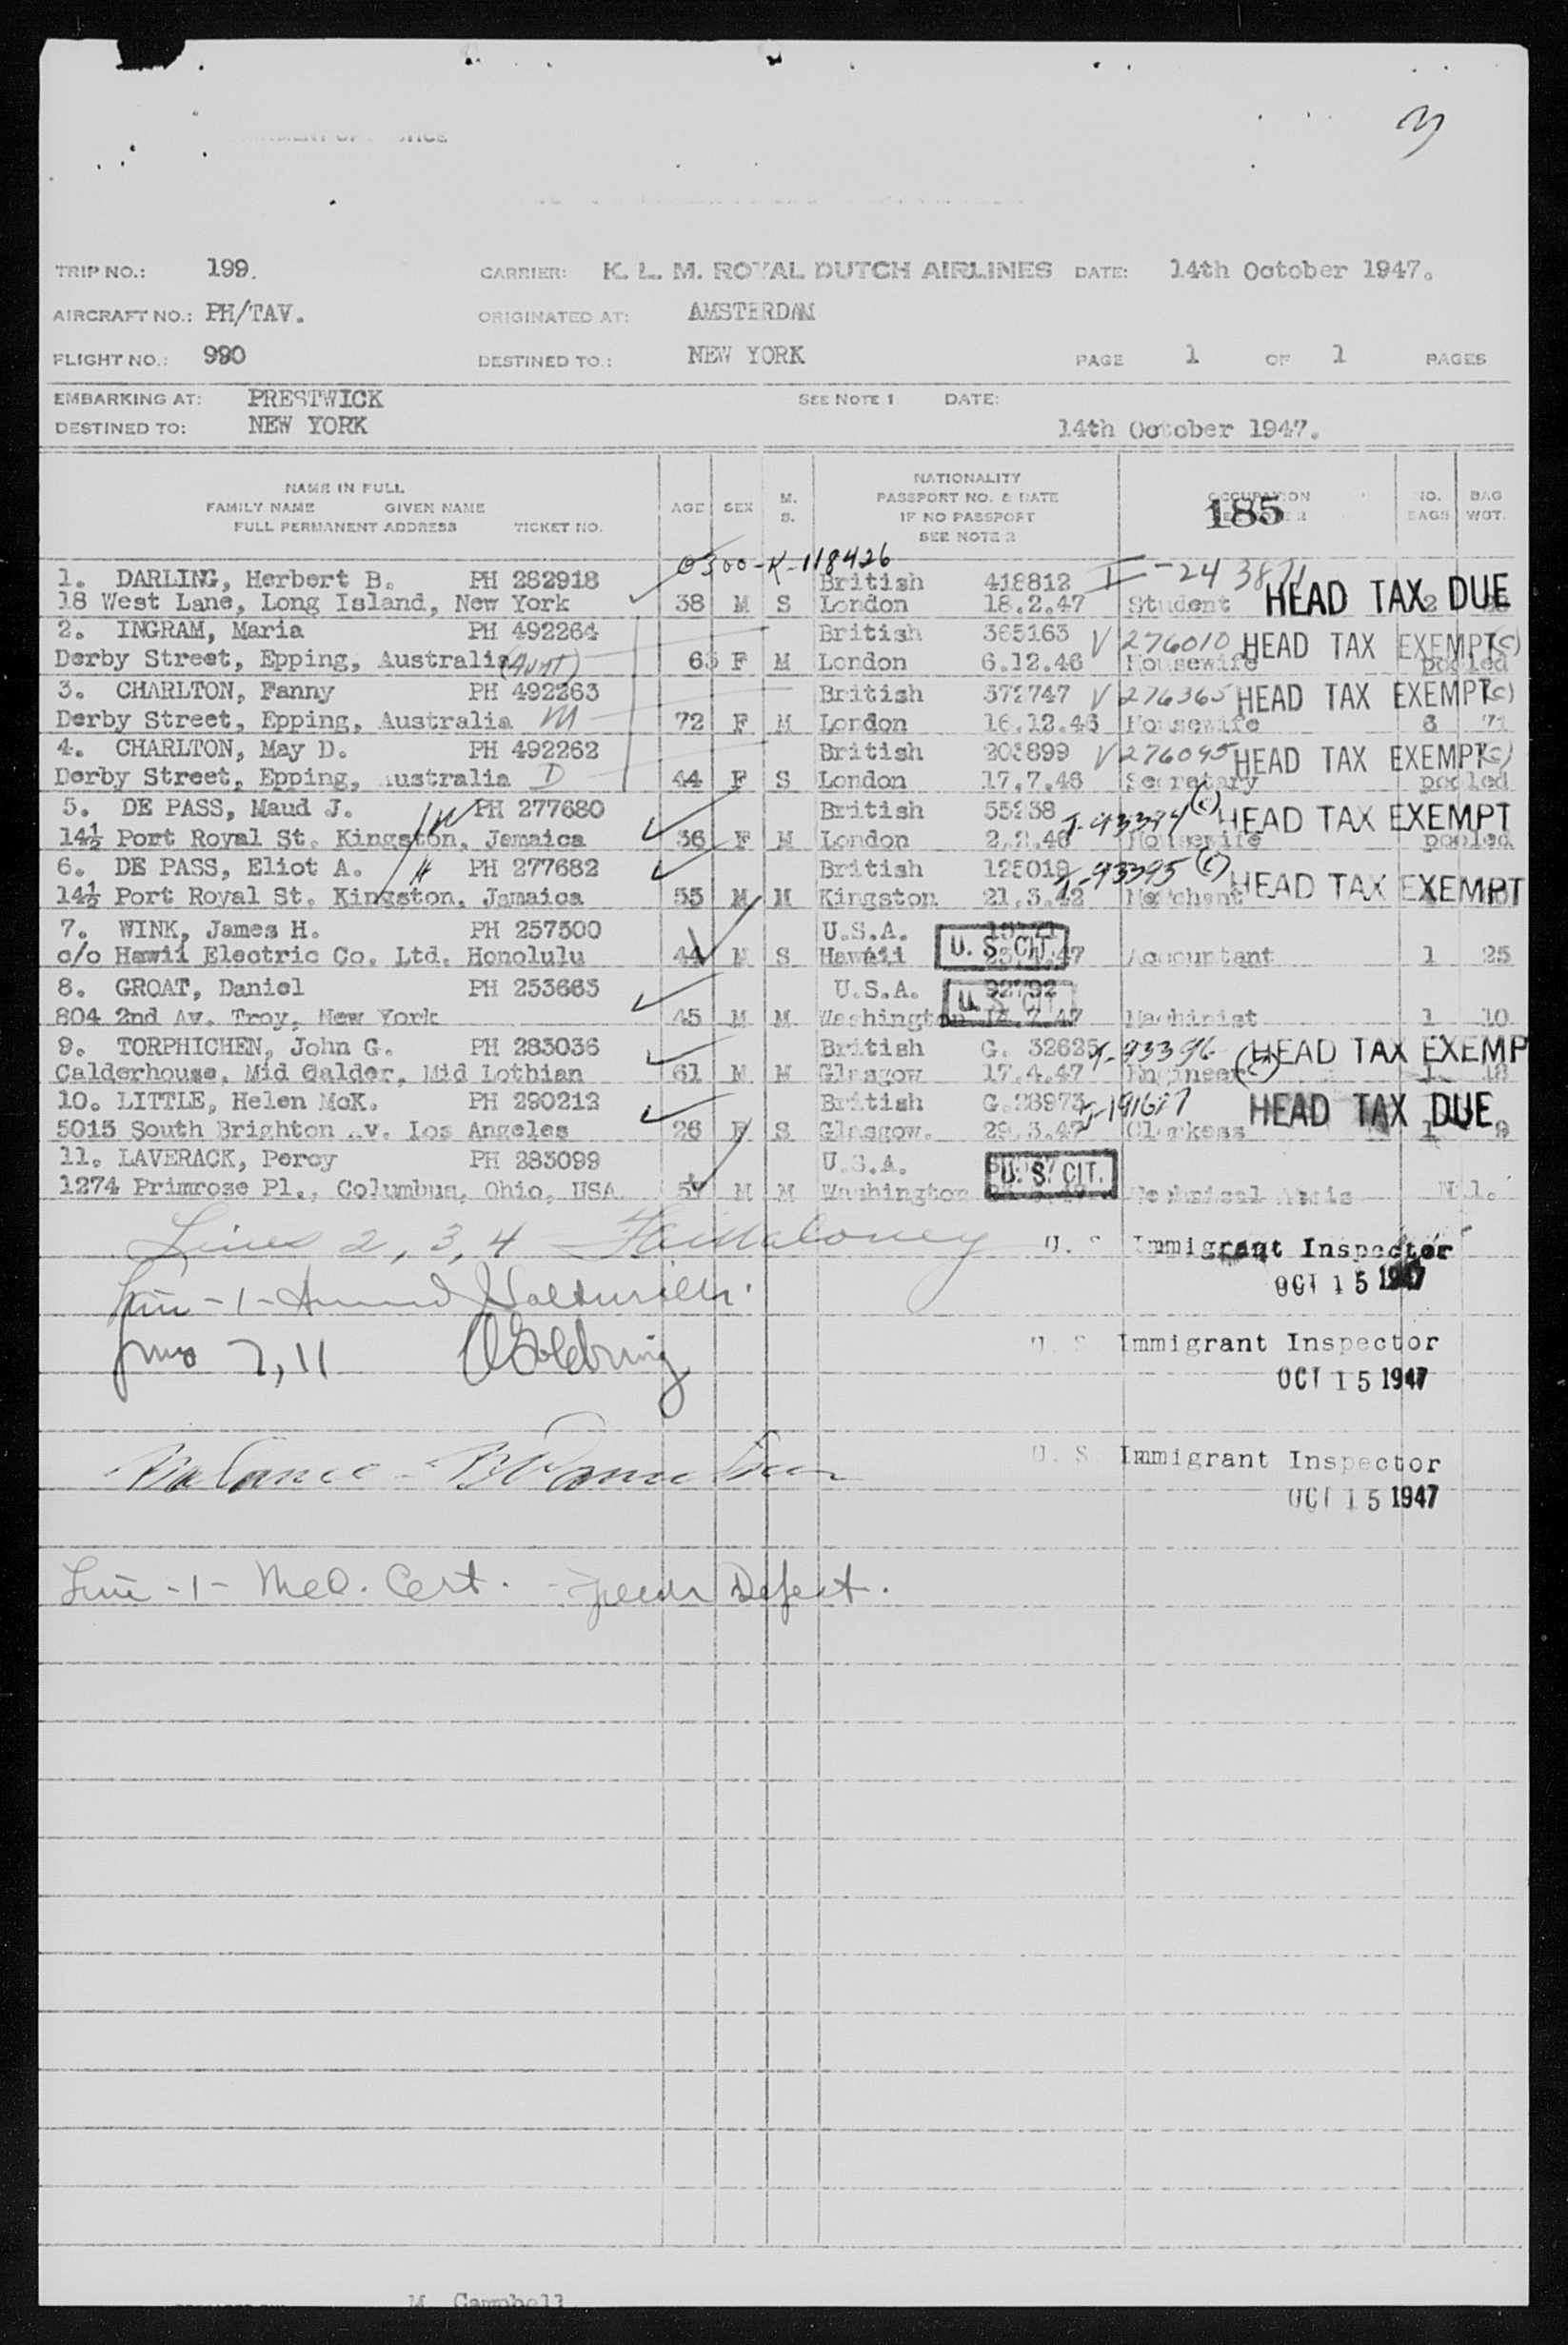 3
TRIP NO.: 199. CARRIER: K. L. M. ROYAL DUTCH AIRLINES DATE: 14th October 1947.
AIRCRAFT NO.: PH/TAV. ORIGINATED AT: AMSTERDAM
FLIGHT NO.: 990 DESTINED TO: NEW YORK PAGE 1 OF 1 PAGES
EMBARKING AT: PRESTWICK SEE NOTE 1 DATE:
DESTINED TO: NEW YORK 14th October 1947.
NAME IN FULL
FAMILY NAME GIVEN NAME
FULL PERMANENT ADDRESS TICKET NO.
AGE SEX M. S.
NATIONALITY
PASSPORT NO. & DATE
IF NO PASSPORT
SEE NOTE 2
OCCUPATION 185
NO. BAGS BAG WGT.
0300-K-118426
1. DARLING, Herbert B. PH 282918 British 418812 HEAD TAX DUE
18 West Lane, Long Island, New York 38 M S London 18.2.47 Student 2
2. INGRAM, Maria PH 492264 British 365163 V 276010 HEAD TAX EXEMPT (c)
Derby Street, Epping, Australia (Aunt) F M London 6.12.46 Housewife pooled
3. CHARLTON, Fanny PH 492263 British 372747 V 276365 HEAD TAX EXEMPT (c)
Derby Street, Epping, Australia M 72 F M London 16.12.46 Housewife 71
4. CHARLTON, May D. PH 492262 British V 276095 HEAD TAX EXEMPT (c)
Derby Street, Epping, Australia D 44 F S London 17.7.46 Secretary pooled
5. DE PASS, Maud J. W PH 277680 British 55238 (c) HEAD TAX EXEMPT
14½ Port Royal St. Kingston, Jamaica 36 F M London 2.2.46 Housewife pooled
6. DE PASS, Eliot A. H PH 277682 British 125019 T-93395 (c) HEAD TAX EXEMPT
14½ Port Royal St. Kingston, Jamaica 55 M M Kingston 21.3.42 Merchant
7. WINK, James H. PH 257500 U.S.A. U. S. CIT.
c/o Hawii Electric Co. Ltd. Honolulu 44 M S Hawaii 47 Accountant 1 25
8. GROAT, Daniel PH 253663 U.S.A. 92792 U. S. CIT.
804 2nd Av. Troy, New York 45 M M Washington 47 Machinist 1 10
9. TORPHICHEN, John G. PH 283036 British G. 32625 T-93396 (c) HEAD TAX EXEMP
Calderhouse, Mid Calder, Mid Lothian 61 M M Glasgow 17.4.47 Engineer 1 18
10. LITTLE, Helen McK. PH 290212 British G.28973 HEAD TAX DUE
5015 South Brighton Av. Los Angeles 26 F S Glasgow. 29.3.47 Clerkess 1 9
11. LAVERACK, Percy PH 283099 U.S.A. U. S. CIT.
1274 Primrose Pl., Columbus, Ohio, USA M M Washington Technical Nil.
Lines 2, 3, 4 Maloney U. S Immigrant Inspector
OCT 15 1947
Line - 1 -
Lines 7, 11 Goldring U. S Immigrant Inspector
OCT 15 1947
Balance - U. S Immigrant Inspector
OCT 15 1947
Line - 1 - Med. Cert. - Defect.
M. Campbell